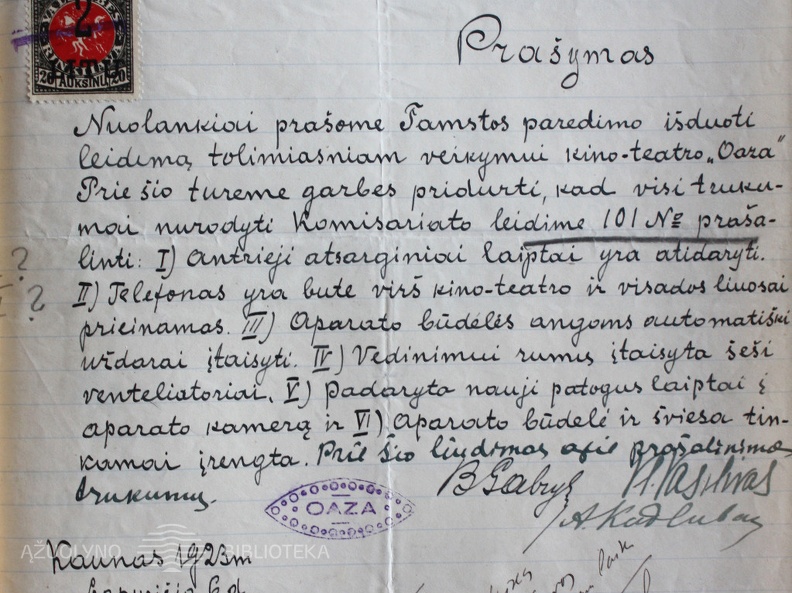 2
20 AUKSINŲ 20
Prašymas
Nuolankiai prašome Tamstos paredimo išduoti
leidimą tolimiasniam veikymui kino-teatro „Oaza"
Prie šio tureme garbes pridurti, kad visi truku-
mai nurodyti Komisariato leidime 101 № praša-
linti: I) Antrieji atsarginiai laiptai yra atidaryti.
II) Telefonas yra bute virš kino-teatro ir visados liuosai
prieinamas. III) Aparato būdelės angoms automatiški
uždarai įtaisyti. IV) Vedinimui rumų įtaisyta šeši
venteliatoriai. V) Padaryta nauji patogus laiptai į
aparato kamerą ir VI) Aparato būdelė ir šviesa tin-
kamai įrengta. Prie šio liudimas apie prašalinimą
trukumų.
B Gabryš
A. Kadlubas
OAZA
ĄŽUOLYNO BIBLIOTEKA
Kaunas 1923m